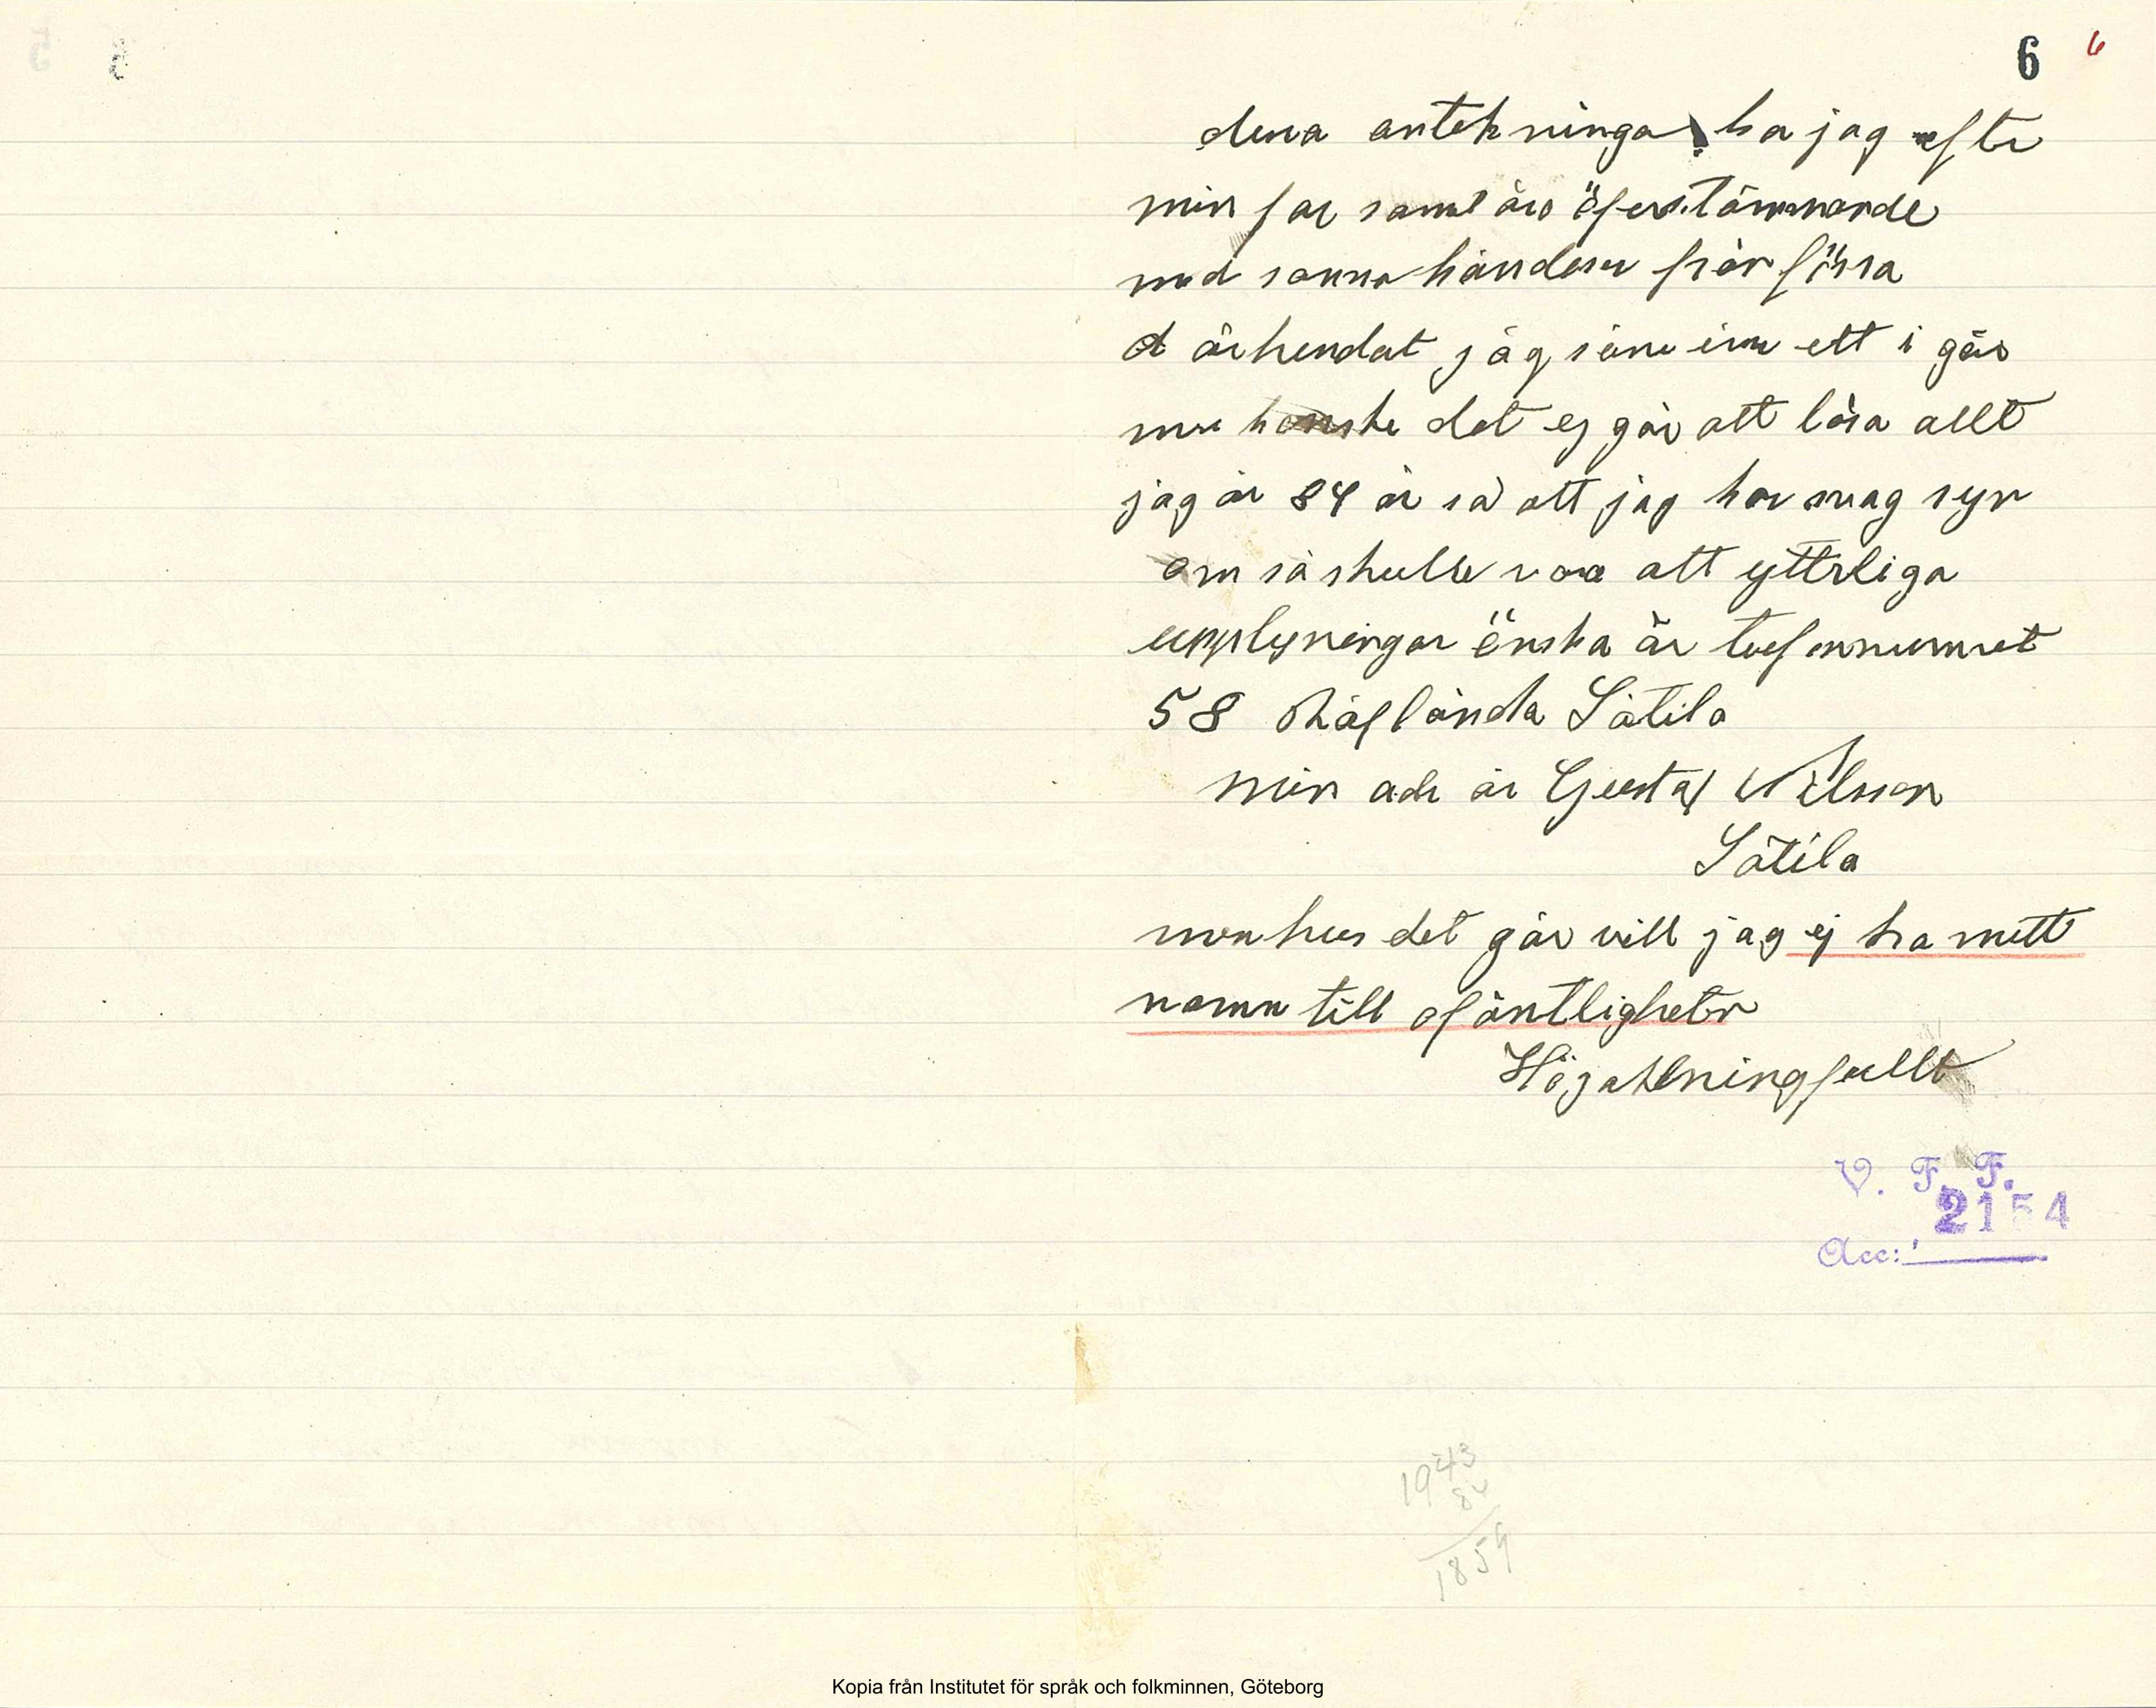 6 6
dena antekninga ha jag efte
min far samt äro öferstämmande
med sanna händeser från förra
år hendat jag ett i går
men kanske det ej går att läsa allt
jag är 84 år så att jag har svag syn
om så skulle vara att ytterliga
upplysningar önska är
58 Häflända Sätila
min adr är Gustaf Nilsson
Sätila
men hur det går vill jag ej ha mitt
namn till ofäntligheten
Högaktningfullt
V. F. F.
2154
Acc:
1943
84
1859
Kopia från Institutet för språk och folkminnen, Göteborg